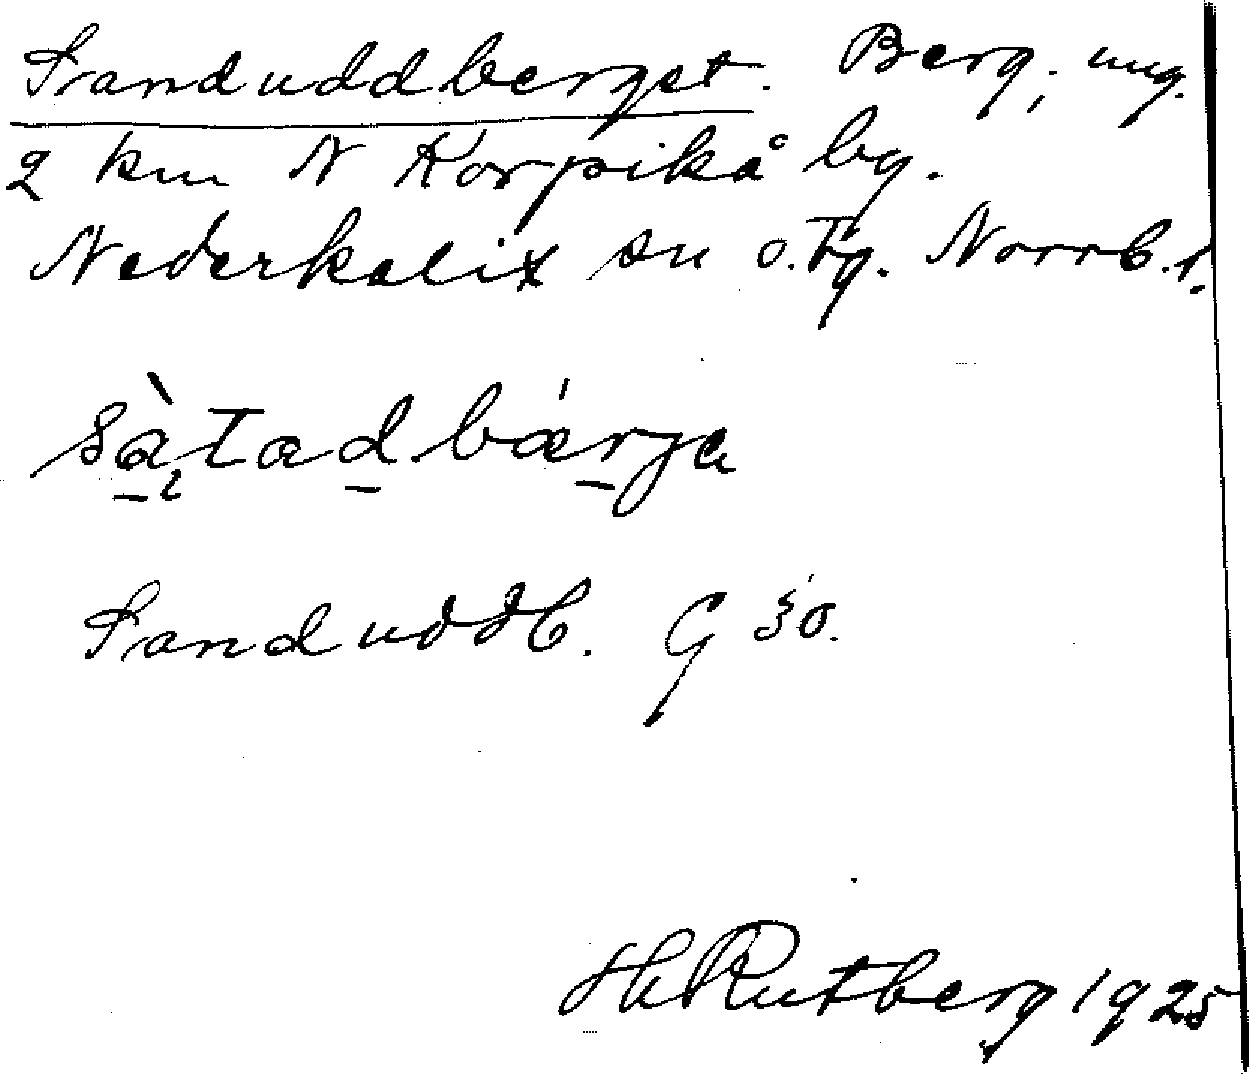 Sanduddberget. Berg, ung.
2 km N Korpikå bg.
Nederkalix sn o. tg. Norrb. l.
Sanduddb. G
H Rutberg 1925